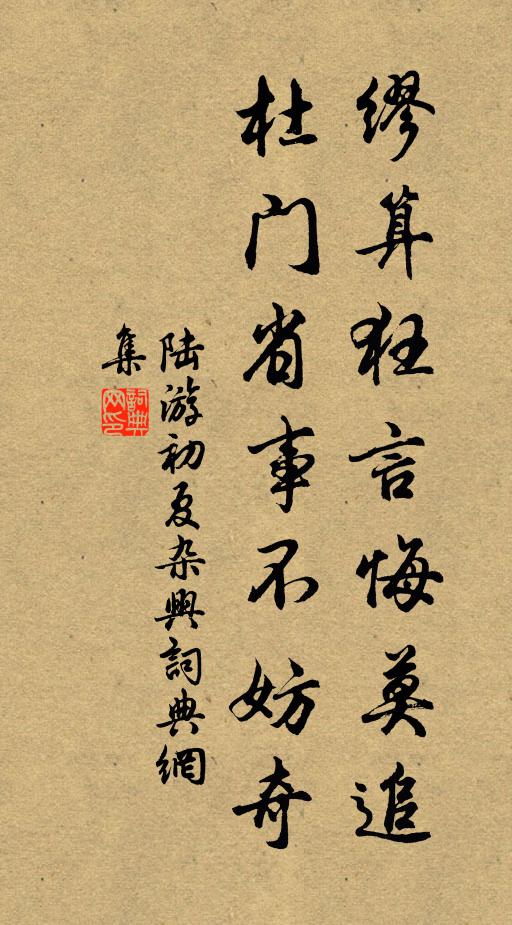 缪算狂言悔莫追
杜门省事不妨奇
陆游初夏杂興詞典網
集
詞典網印